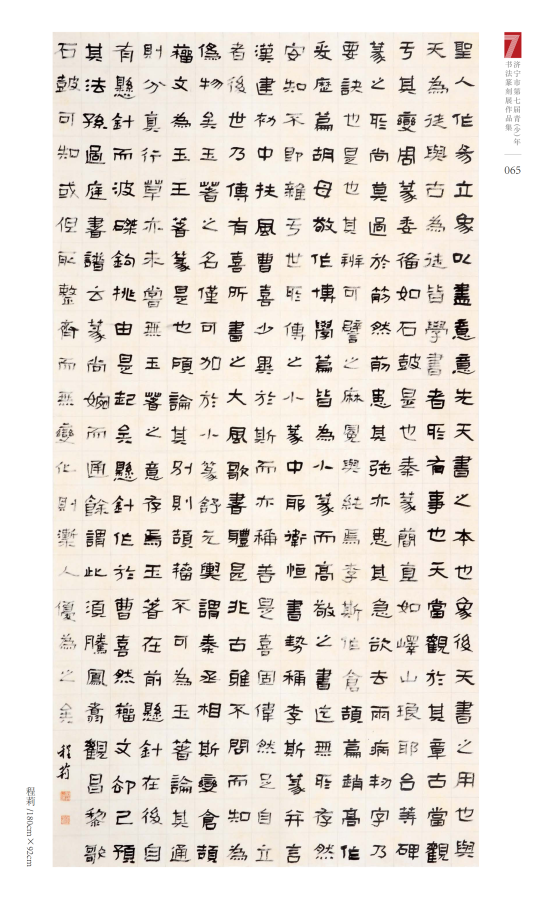 7
济宁市第七届青(少)年
书法篆刻展作品集
065
聖人作易立象以盡意意先天書之本也象後天書之用也與
天為徒與古為徒皆學書者所有事也天當觀於其章古當觀
于其變周篆委備如石鼓是也秦篆簡直如嶧山琅耶台等碑
篆之所尚莫過於筋然筋患其弛亦患其急欲去兩病字乃
要訣也是也其辨可譬之麻冕與純焉李斯作倉頡篇趙高作
爰歷篇胡母敬作博學篇皆為小篆而高敬之書迄無所存然
安知不即雜于世所傳之小篆中耶衛恒書勢稱李斯篆并言
漢建初中扶風曹喜少異於斯而亦稱善是喜固偉然足自立
者後世乃傳有喜所書之大風歌書體甚非古雅不問而知為
偽物矣玉箸之名僅可加於小篆舒元輿謂秦丞相斯變倉頡
籀文為玉王箸篆是也顧論其別則頡籀不可為玉箸論其通
則分真行草亦未嘗無玉箸之意存焉玉箸在前懸針在後自
有懸針而波磔鉤挑由是起矣懸針作於曹喜然籀文卻已預
其法孫過庭書譜云篆尚婉而通餘謂此須騰鳳翥觀昌黎歌
石鼓可知或但取整齊而無變化則槧人優為之矣
程莉
程莉 /180cm×92cm